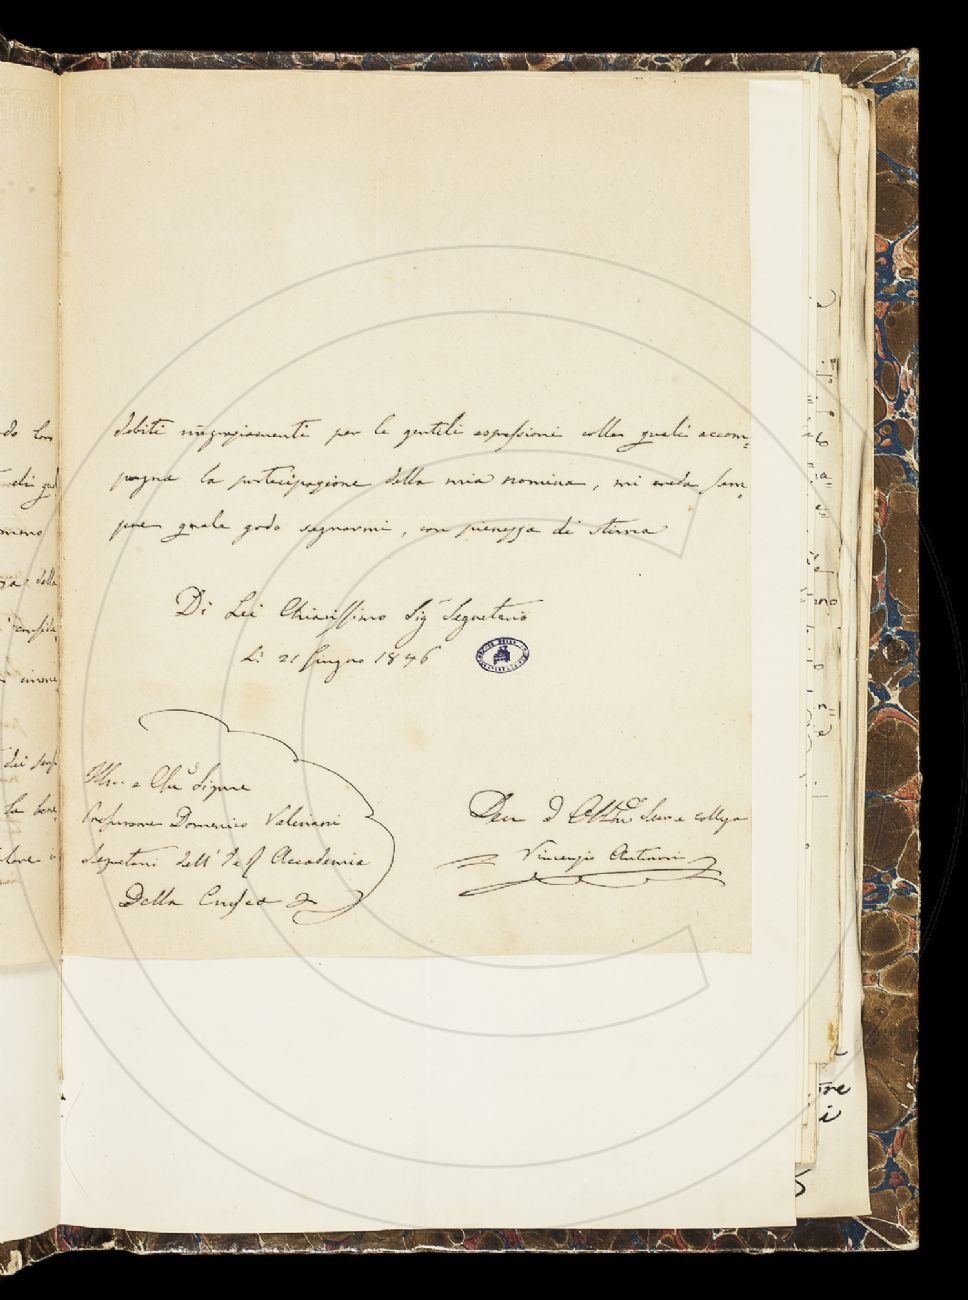 debiti ringraziamenti per le gentili espressioni colle quali accom=
pagna la partecipazione della mia nomina, mi creda sem=
pre quale godo segnarmi, con pienezza di stima
Di Lei Chiarissimo Sig.r Segretario
Li 21 Giugno 1846
Illmo e Chr̃o Signore
Professore Domenico Valeriani
Segretario dell' I e R Accademia
Della Crusca
Dev̄ ed Obb.mo Serv e collega
Vincenzio Antinori